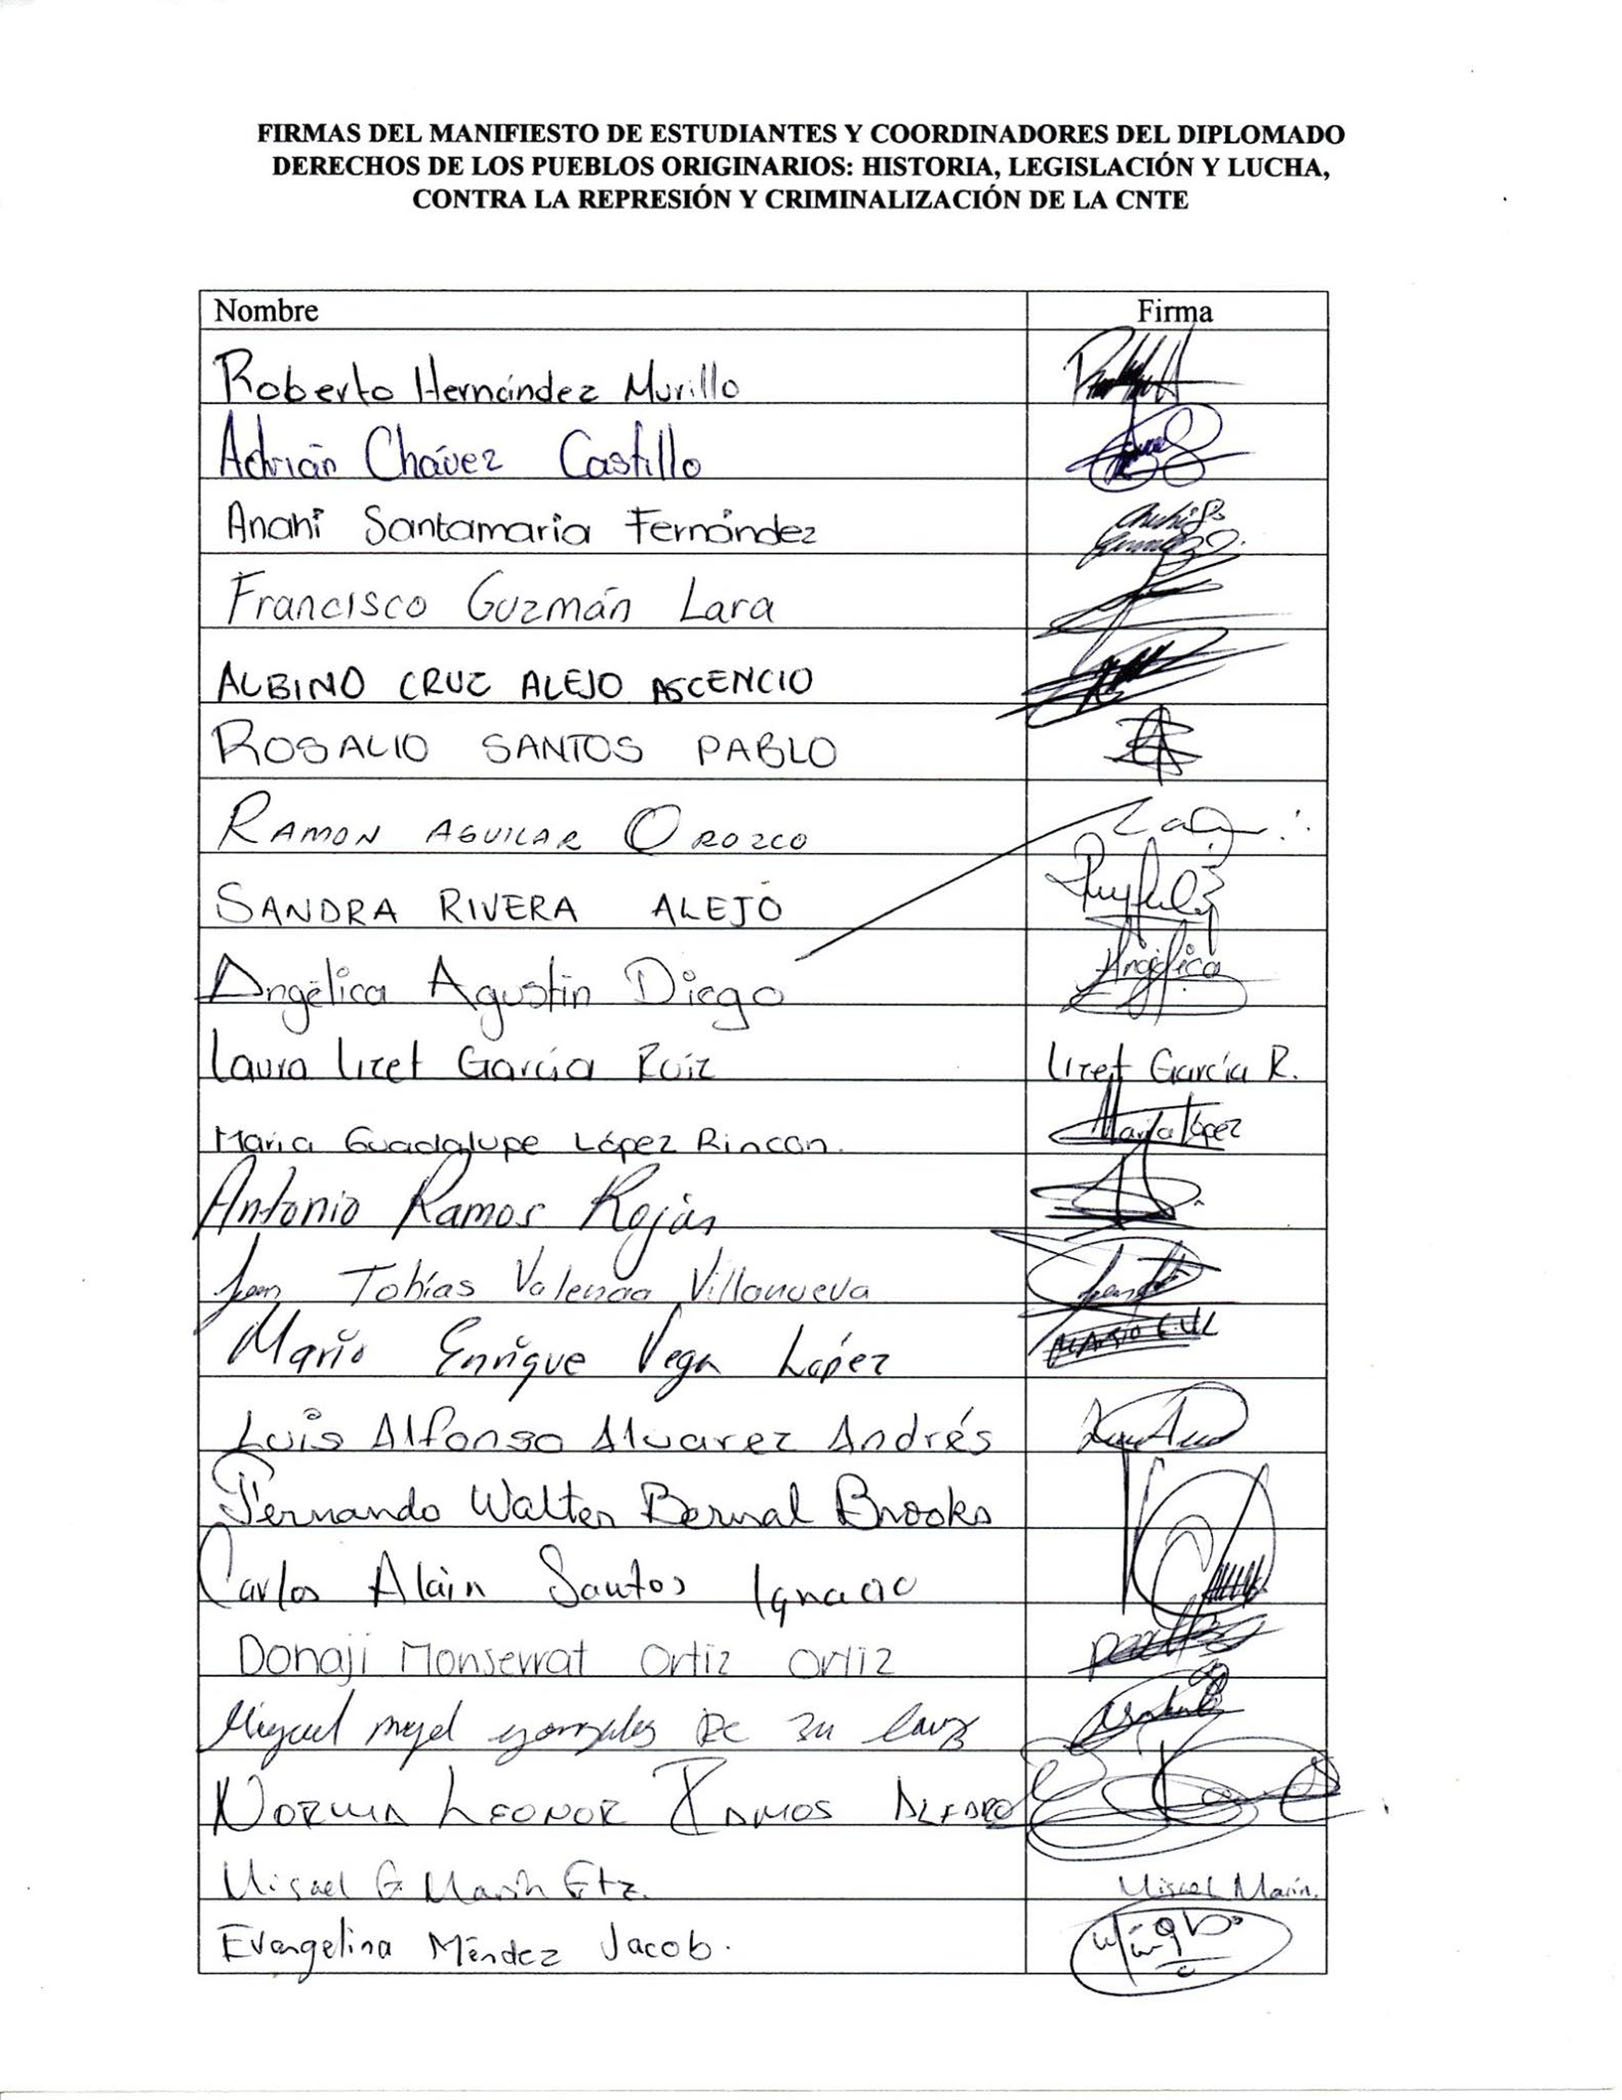 FIRMAS DEL MANIFIESTO DE ESTUDIANTES Y COORDINADORES DEL DIPLOMADO
DERECHOS DE LOS PUEBLOS ORIGINARIOS: HISTORIA, LEGISLACIÓN Y LUCHA,
CONTRA LA REPRESIÓN Y CRIMINALIZACIÓN DE LA CNTE
Nombre Firma
Roberto Hernández Murillo
Adrián Chávez Castillo
Anahi Santamaria Fernández
Francisco Guzmán Lara
ALBINO CRUZ ALEJO ASCENCIO
ROSALIO SANTOS PABLO
RAMON AGUILAR OROZCO
SANDRA RIVERA ALEJO
Angélica Agustin Diego Angélica
Laura Lizet García Ruiz Lizet García R.
Maria Guadalupe López Rincon. Maria López
Antonio Ramos Rojas
Juan Tobías Valencia Villanueva
Mario Enrique Vega López MARIO E.V.L
Luis Alfonso Alvarez Andrés
Fernando Walter Bernal Brooks
Carlos Alain Santos Ignacio
Donaji Monserrat Ortiz Ortiz
Miguel
NORMA LEONOR RAMOS ALFARO
Misael G. Marín Gtz. Misael Marín.
Evangelina Méndez Jacob.